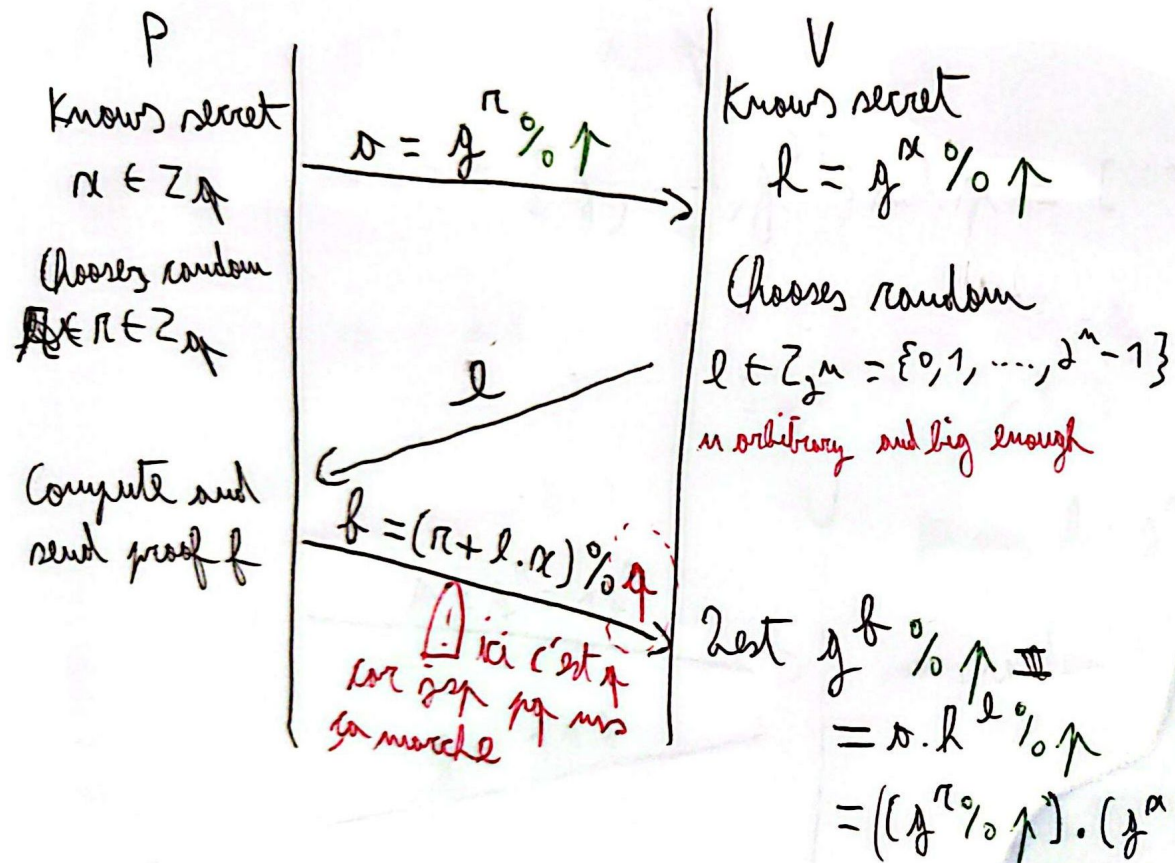 P
Knows secret
x ∈ Z_q
Chooses random
r ∈ Z_q
Compute and
send proof f
s = g^r % p
e
f = (r + e.x) % q
! ici c'est q
car jsp pq ms
ça marche
V
Knows secret
h = g^x % p
Chooses random
e ∈ Z_2^n = {0, 1, ...., 2^n - 1}
n arbitrary and big enough
Test g^f % p
= s.h^e % p
= ((g^r % p).(g^x